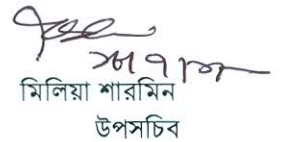 মিলিয়া শারমিন
উপসচিব